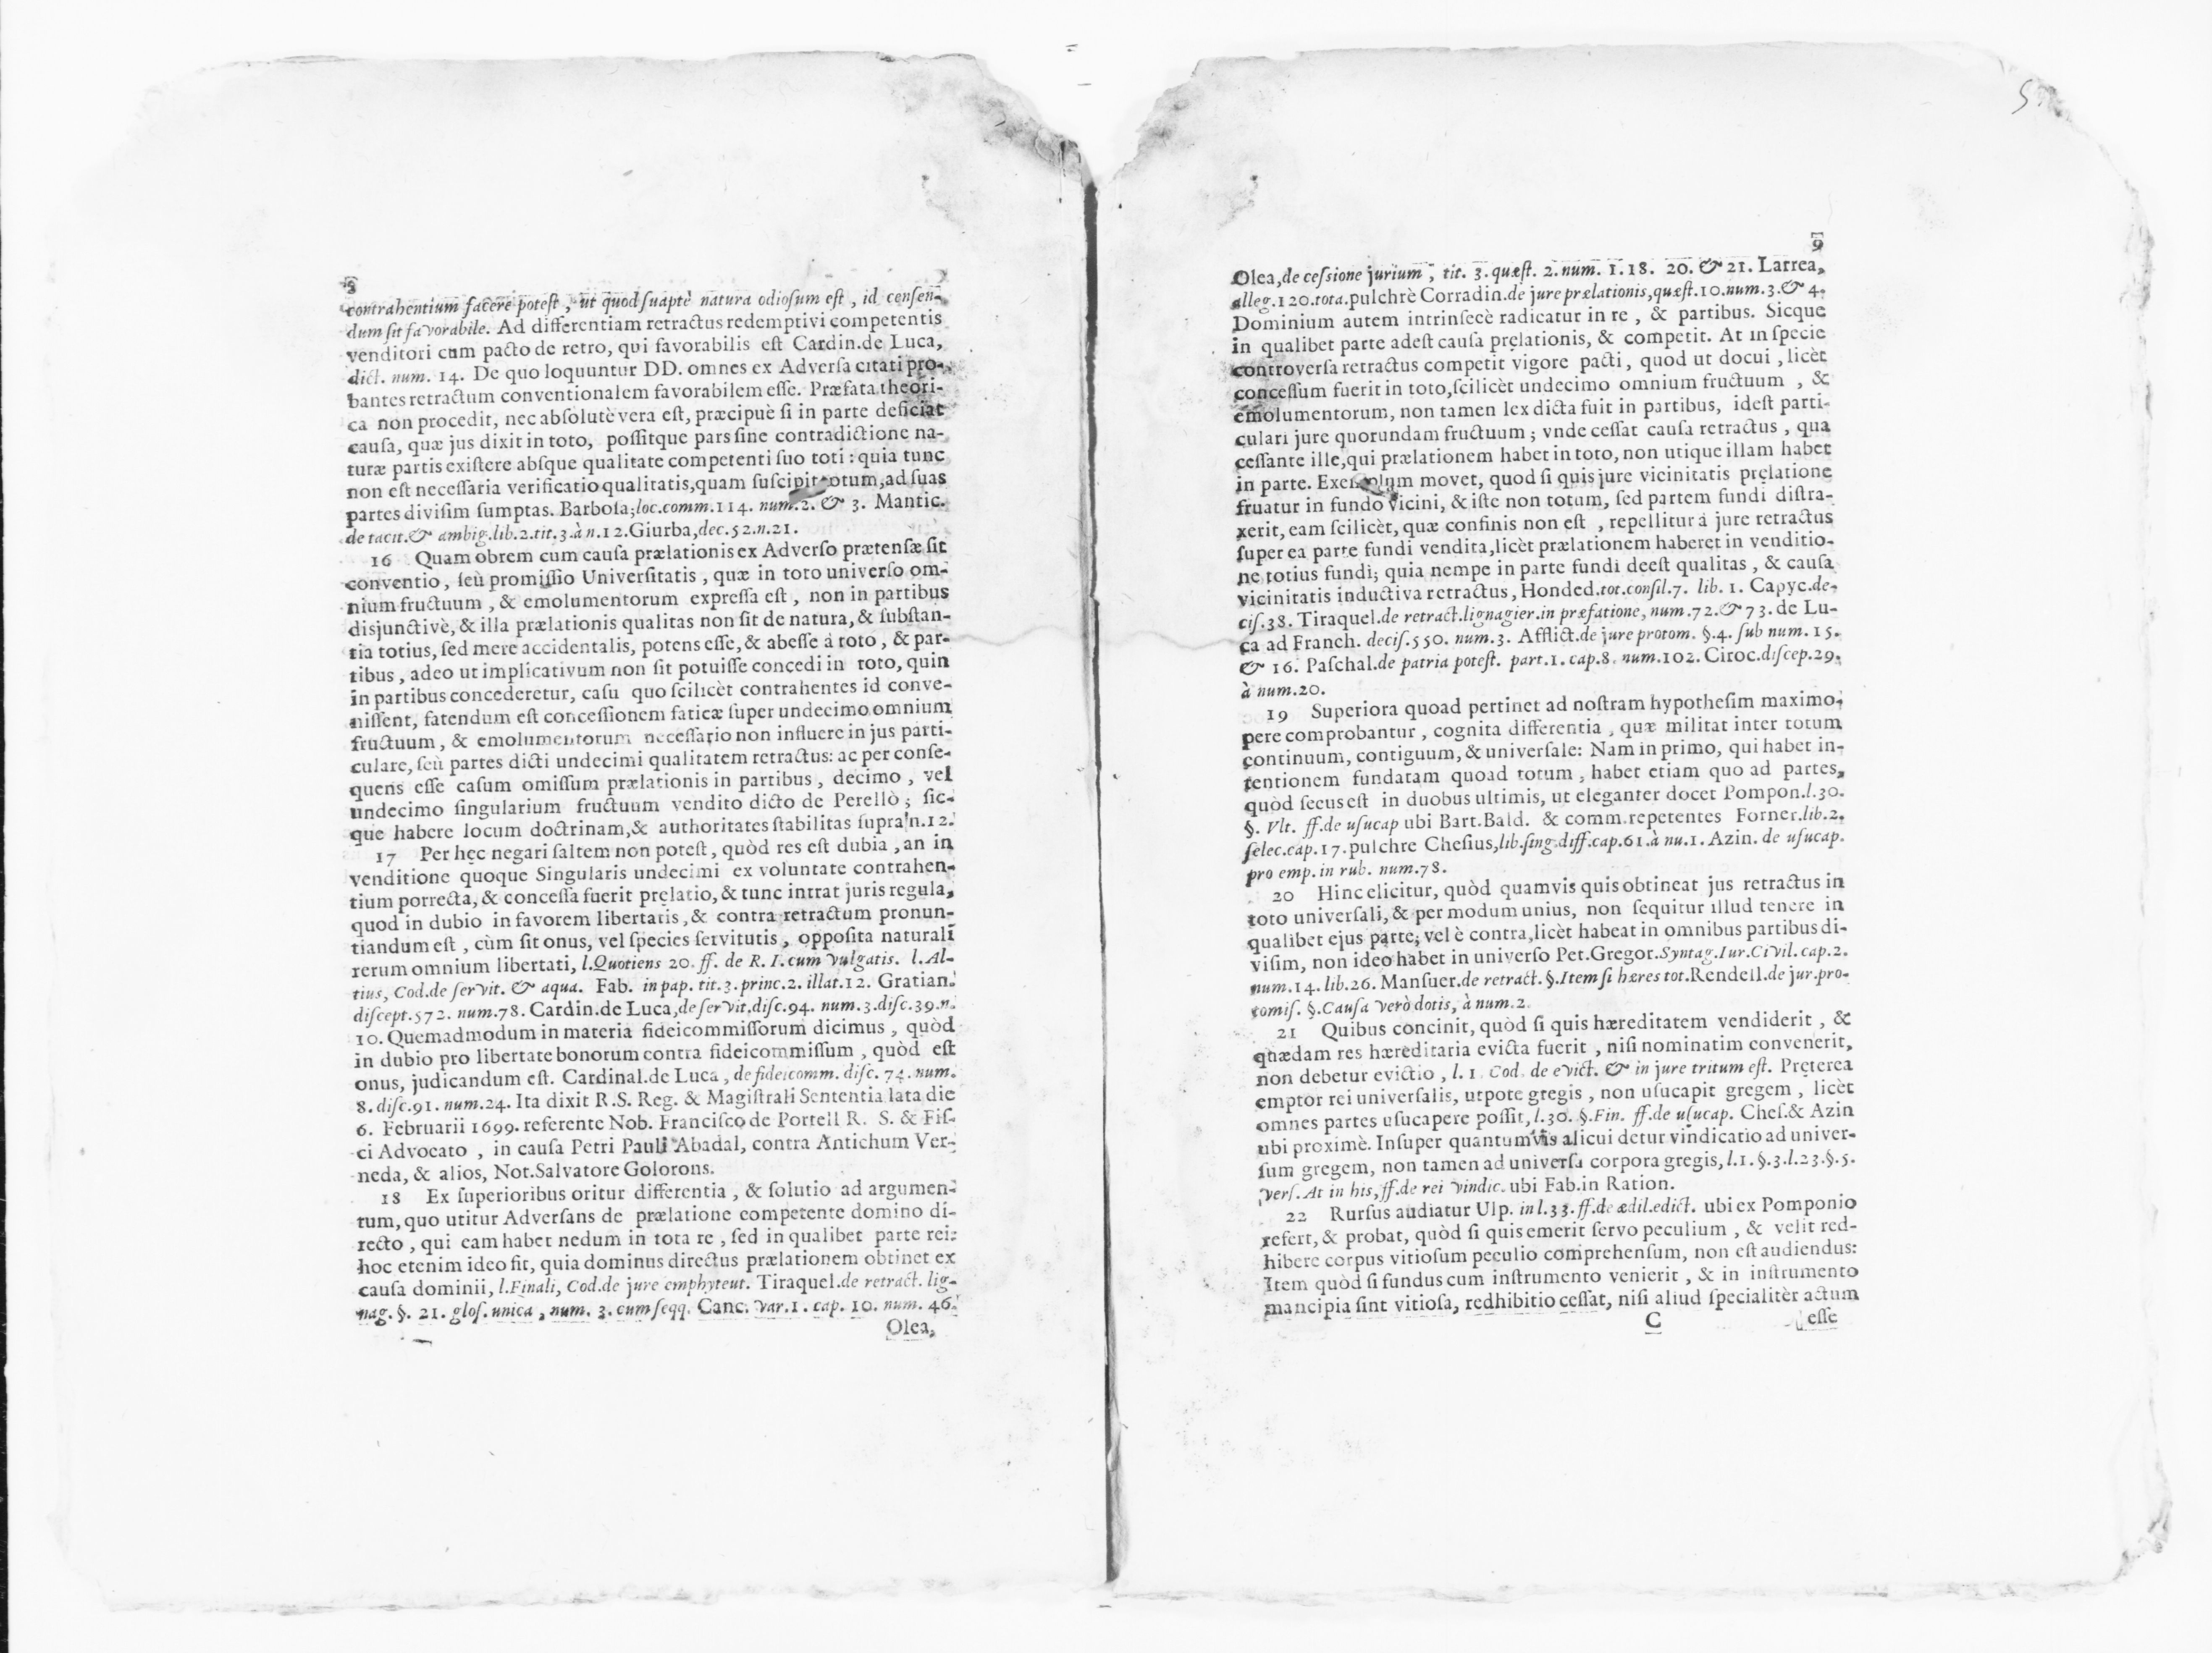 8
contrahentium facere potest, ut quod suaptè natura odiosum est, id censen-
dum sit favorabile. Ad differentiam retractus redemptivi competentis
venditori cum pacto de retro, qui favorabilis est Cardin.de Luca,
dict. num. 14. De quo loquuntur DD. omnes ex Adversa citati pro-
bantes retractum conventionalem favorabilem esse. Præfata theori-
ca non procedit, nec absolutè vera est, præcipuè si in parte deficiat
causa, quæ jus dixit in toto, possitque pars sine contradictione na-
turæ partis existere absque qualitate competenti suo toti: quia tunc
non est necessaria verificatio qualitatis, quam suscipit totum, ad suas
partes divisim sumptas. Barbosa; loc.comm.114. num.2. & 3. Mantic.
de tacit.& ambig.lib.2.tit.3.à n.12.Giurba, dec.52.n.21.
16 Quam obrem cum causa prælationis ex Adverso prætensæ sit
conventio, seù promissio Universitatis, quæ in toto universo om-
nium fructuum, & emolumentorum expressa est, non in partibus
disjunctivè, & illa prælationis qualitas non sit de natura, & substan-
tia totius, sed mere accidentalis, potens esse, & abesse à toto, & par-
tibus, adeo ut implicativum non sit potuisse concedi in toto, quin
in partibus concederetur, casu quo scilicèt contrahentes id conve-
nissent, fatendum est concessionem faticæ super undecimo omnium
fructuum, & emolumentorum necessario non influere in jus parti-
culare, seù partes dicti undecimi qualitatem retractus: ac per conse-
quens esse casum omissum prælationis in partibus, decimo, vel
undecimo singularium fructuum vendito dicto de Perellò; sic-
que habere locum doctrinam, & authoritates stabilitas supra n.12.
17 Per hęc negari saltem non potest, quòd res est dubia, an in
venditione quoque Singularis undecimi ex voluntate contrahen-
tium porrecta, & concessa fuerit pręlatio, & tunc intrat juris regula,
quod in dubio in favorem libertatis, & contra retractum pronun-
tiandum est, cùm sit onus, vel species servitutis, opposita naturali
rerum omnium libertati, l.Quotiens 20. ff. de R. I. cum vulgatis. l. Al-
tius, Cod.de servit. & aqua. Fab. in pap. tit.3. princ.2. illat.12. Gratian.
discept.572. num.78. Cardin.de Luca, de servit.disc.94. num.3.disc.39.n.
10. Quemadmodum in materia fideicommissorum dicimus, quòd
in dubio pro libertate bonorum contra fideicommissum, quòd est
onus, judicandum est. Cardinal.de Luca, de fideicomm. disc. 74. num.
8. disc.91. num.24. Ita dixit R.S. Reg. & Magistrali Sententia lata die
6. Februarii 1699. referente Nob. Francisco de Portell R. S. & Fis-
ci Advocato, in causa Petri Pauli Abadal, contra Antichum Ver-
neda, & alios, Not.Salvatore Golorons.
18 Ex superioribus oritur differentia, & solutio ad argumen-
tum, quo utitur Adversans de prælatione competente domino di-
recto, qui eam habet nedum in tota re, sed in qualibet parte rei:
hoc etenim ideo fit, quia dominus directus prælationem obtinet ex
causa dominii, l.Finali, Cod.de jure emphyteut. Tiraquel.de retract. lig-
nag. §. 21. glos. unica, num. 3. cum seqq. Canc. var.1. cap. 10. num. 46.
Olea,
9
Olea, de cessione jurium, tit. 3. quæst. 2. num. 1.18. 20. & 21. Larrea,
alleg.120.tota.pulchrè Corradin.de jure prælationis, quæst.10.num.3.& 4.
Dominium autem intrinsecè radicatur in re, & partibus. Sicque
in qualibet parte adest causa pręlationis, & competit. At in specie
controversa retractus competit vigore pacti, quod ut docui, licèt
concessum fuerit in toto, scilicèt undecimo omnium fructuum, &
emolumentorum, non tamen lex dicta fuit in partibus, idest parti-
culari jure quorundam fructuum; vnde cessat causa retractus, qua
cessante ille, qui prælationem habet in toto, non utique illam habet
in parte. Exemplum movet, quod si quis jure vicinitatis pręlatione
fruatur in fundo vicini, & iste non totum, sed partem fundi distra-
xerit, eam scilicèt, quæ confinis non est, repellitur à jure retractus
super ea parte fundi vendita, licèt prælationem haberet in venditio-
ne totius fundi; quia nempe in parte fundi deest qualitas, & causa
vicinitatis inductiva retractus, Honded.tot.consil.7. lib. 1. Capyc.de-
cis.38. Tiraquel.de retract.lignagier.in præfatione, num.72.& 73. de Lu-
ca ad Franch. decis.550. num.3. Afflict.de jure protom. §.4. sub num. 15.
& 16. Paschal.de patria potest. part.1. cap.8. num.102. Ciroc.discep.29.
à num.20.
19 Superiora quoad pertinet ad nostram hypothesim maximo-
pere comprobantur, cognita differentia, quæ militat inter totum
continuum, contiguum, & universale: Nam in primo, qui habet in-
tentionem fundatam quoad totum, habet etiam quo ad partes,
quòd secus est in duobus ultimis, ut eleganter docet Pompon.l.30.
§. Vlt. ff.de usucap ubi Bart.Bald. & comm.repetentes Forner.lib.2.
selec.cap.17.pulchre Chesius, lib.sing.diff.cap.61.à nu.1. Azin. de usucap.
pro emp. in rub. num.78.
20 Hinc elicitur, quòd quamvis quis obtineat jus retractus in
toto universali, & per modum unius, non sequitur illud tenere in
qualibet ejus parte; vel è contra, licèt habeat in omnibus partibus di-
visim, non ideo habet in universo Pet.Gregor.Syntag.Iur.Civil. cap.2.
num.14. lib.26. Mansuer.de retract. §.Item si hæres tot.Rendell.de jur.pro-
tomis. §.Causa verò dotis, à num.2.
21 Quibus concinit, quòd si quis hæreditatem vendiderit, &
quædam res hæreditaria evicta fuerit, nisi nominatim convenerit,
non debetur evictio, l. 1. Cod. de evict. & in jure tritum est. Pręterea
emptor rei universalis, utpote gregis, non usucapit gregem, licèt
omnes partes usucapere possit, l.30. §.Fin. ff.de usucap. Ches.& Azin
ubi proximè. Insuper quantumvis alicui detur vindicatio ad univer-
sum gregem, non tamen ad universa corpora gregis, l.1.§.3.l.23.§.5.
vers. At in his, ff.de rei vindic. ubi Fab.in Ration.
22 Rursus audiatur Ulp. in l.33. ff.de ædil.edict. ubi ex Pomponio
refert, & probat, quòd si quis emerit servo peculium, & velit red-
hibere corpus vitiosum peculio comprehensum, non est audiendus:
Item quòd si fundus cum instrumento venierit, & in instrumento
mancipia sint vitiosa, redhibitio cessat, nisi aliud specialitèr actum
C esse